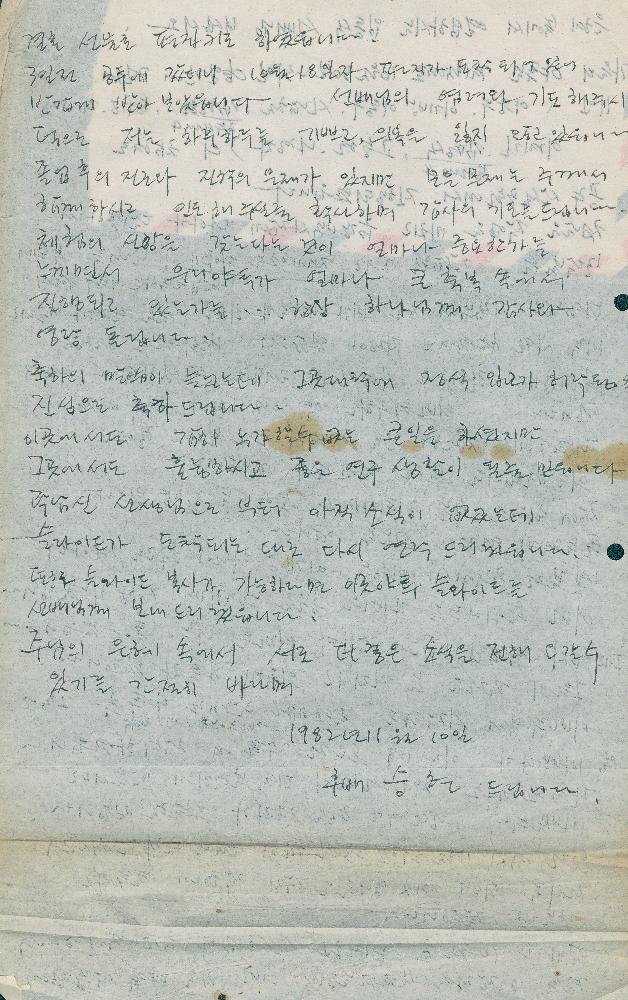 결혼 선물로 편집키로 하였읍니다.
3일전 광주에 갔더니 10월 18일자 편지가 도착되고 있어
반갑게 받아 보았읍니다. 선배님의 염려와 기도해주시
덕으로 저는 하루하루를 기쁘고, 의욕을 잃지 않고 있읍니다
졸업후의 진로나 진학의 문제가 있지만 모든 문제는 주께서
함께하시고 인도해 주심을 확신하며 감사의 기도를 드립니다.
체험의 신앙을 갖는다는 것이 얼마나 중요한가를
느끼면서 우리야학가 얼마나 큰 축복 속에서
진행되고 있는가를 항상 하나님께 감사와
영광 돌립니다.
축하의 말씀이 늦었는데 그곳대학에 정식 입교가 허락됨을
진심으로 축하드립니다.
이곳에서도 감히 누가 할수 없는 큰일을 하셨지만
그곳에서도 훌륭하시고 좋은 연구 생활이 될줄 만습니다
선생님으로 부터 아직 소식이 없었는데
슬라이드가 도착되는 대로 다시 연락 드리겠읍니다.
또한 슬라이드 복사가 가능하다면 이곳야학 슬라이드를
선배님께 보내 드리겠읍니다.
주님의 은혜 속에서 서로 더 좋은 소식을 전해 드릴수
있기를 간절히 바라며
1982년 11월 10일
후배 승 드립니다.